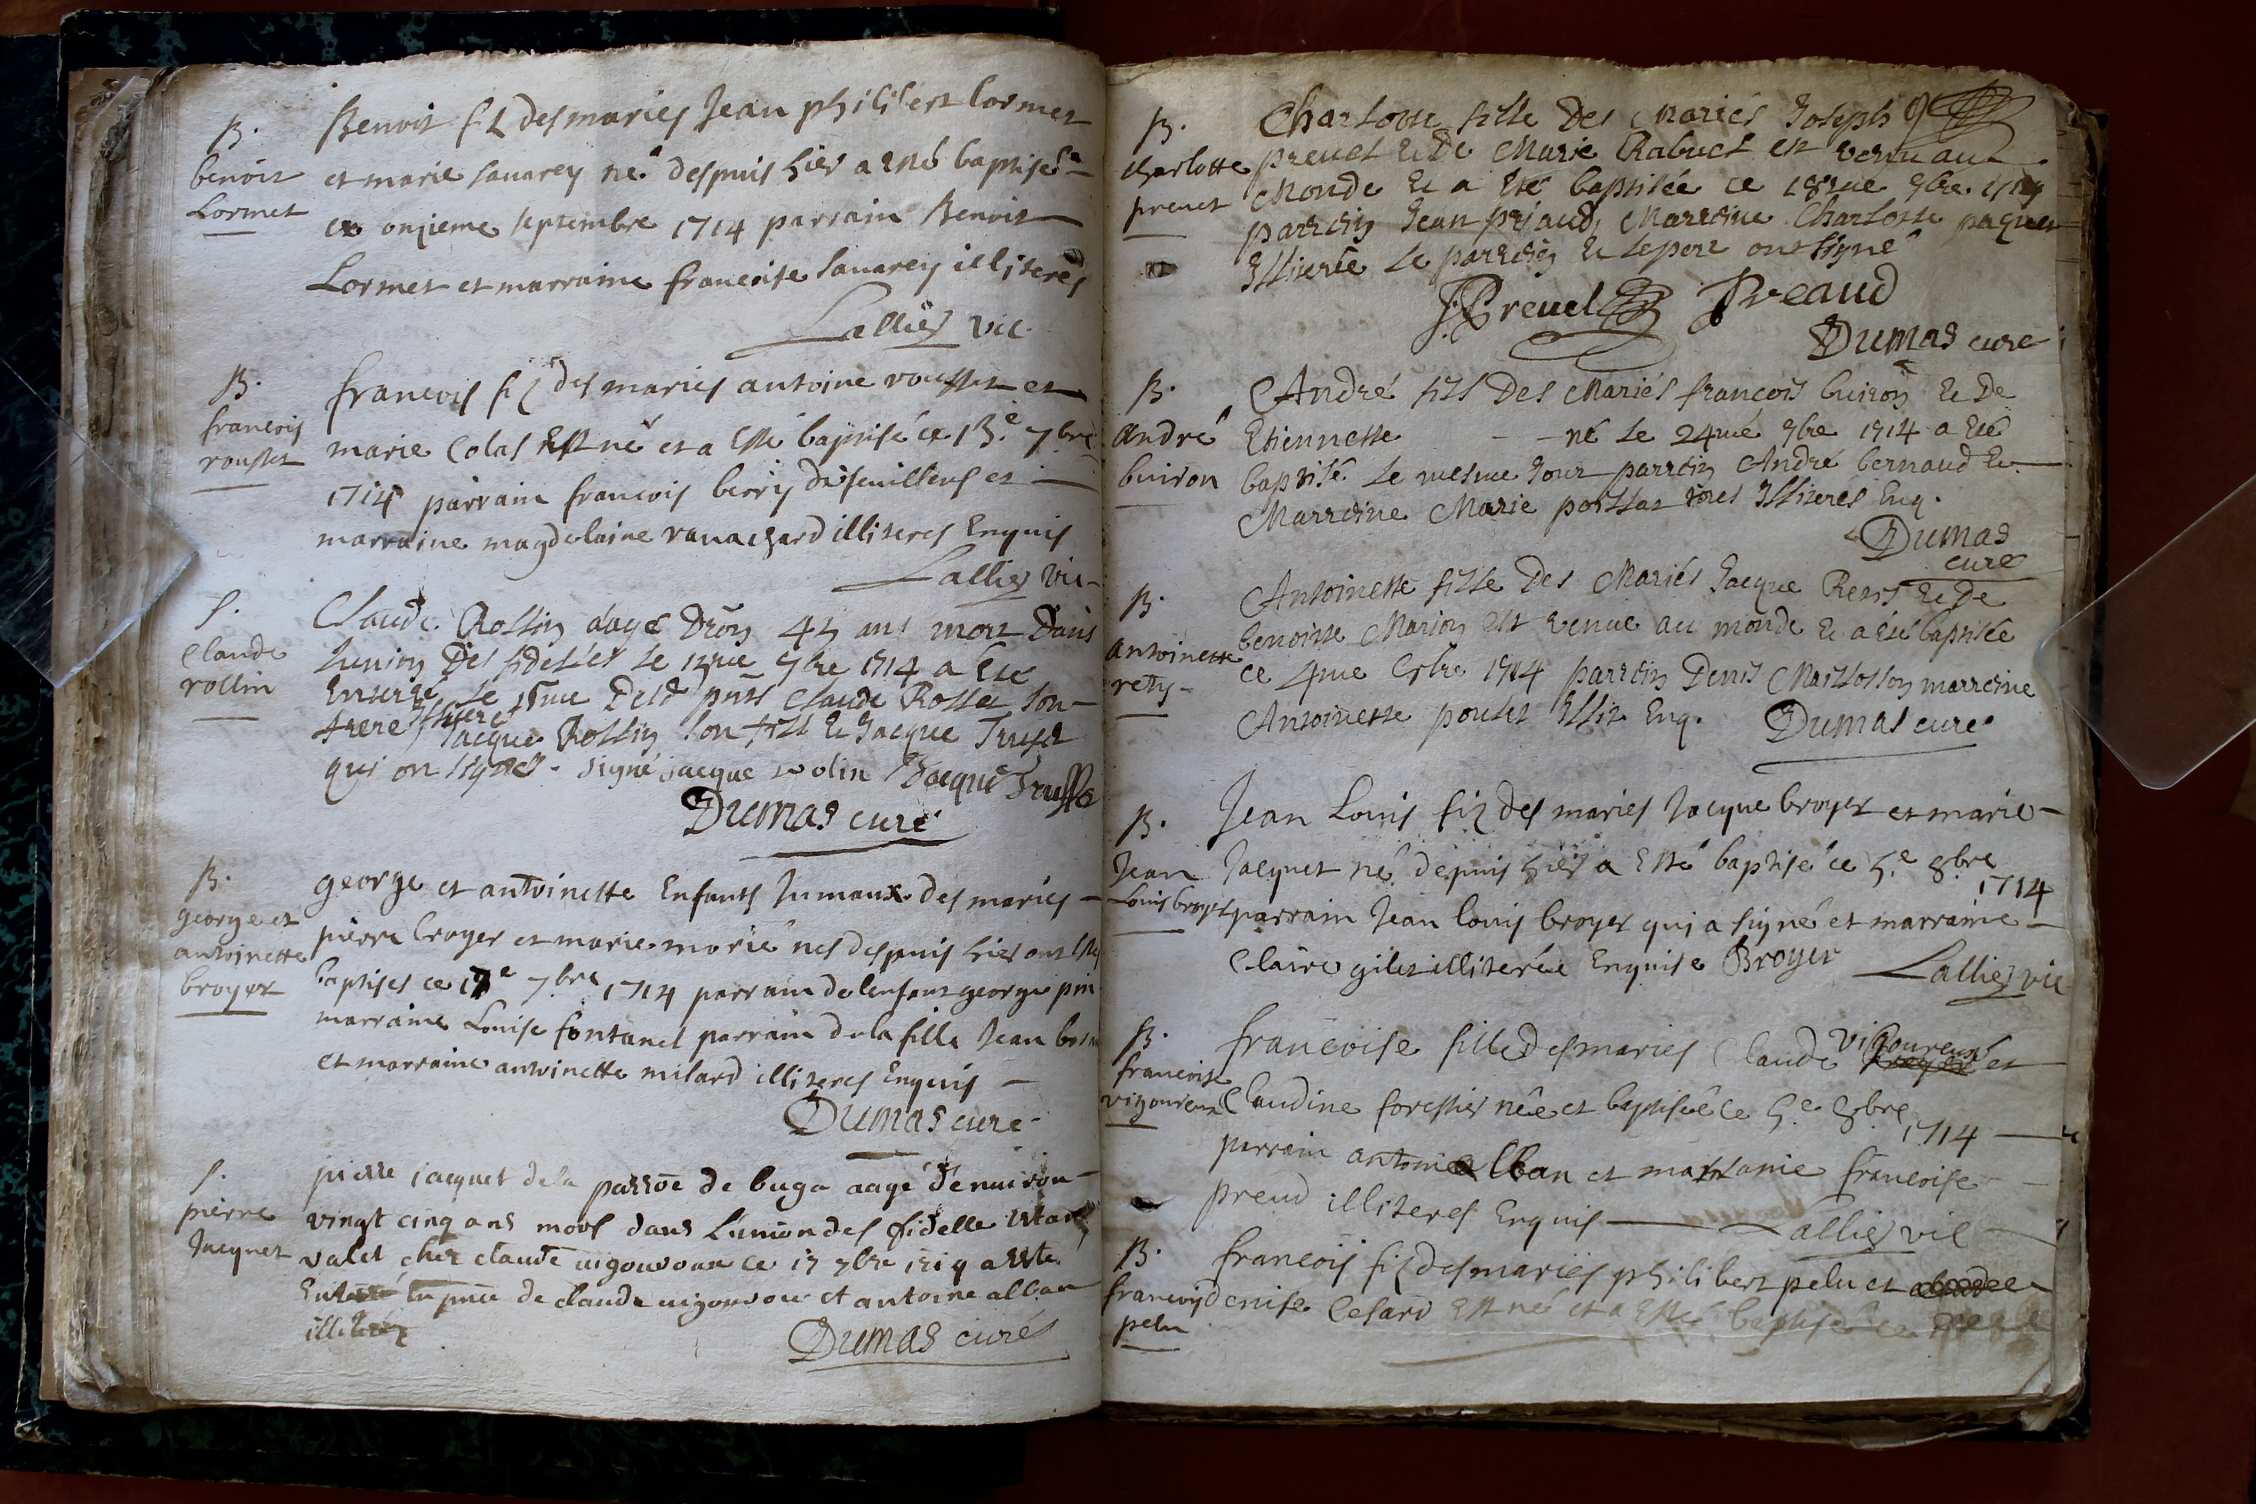 B.
benoit
Lormet
Benoit fil des mariés Jean philibert Lormet
et marie sauarey né despuis hier a esté baptisé
ce onzieme septembre 1714 parrain Benoit
Lormet et marraine francoise sauarey illiterés
Lallier vic
B.
francois
rousset
francois fil des mariés antoine rousset et
marie Colas Est né et a Esté baptisé ce 13.e 7bre
1714 parrain francois berry et
marraine magdelaine rauachard illiteres Enquis
Lallier vic
S.
Claude
rollin
Claude Rollin aagé Dron 45 ans mort Dans
Lunion Des fidelles le 7bre 1714 a Eté
Enterré le 15me Dud pnts Claude Rollet son
frere Illiteré Jacque Rollin son fils & Jacque
qui on signés signé jacque rolin Jacque
Dumas curé
B.
george et
antoinette
broyer
george et antoinette Enfants Jumaux des mariés
pierre broyer et marie morie nes despuis hier ont Esté
baptises ce 7bre 1714 parrain de lenfant george pin
marraine Louise fontanel parrain de la fille Jean
et marraine antoinette milard illiteres Enquis
Dumas curé
S.
pierre
Jacquet
pierre jacquet de la parroe de buga aagé denuiron
vingt cinq ans mort dans Lunion des fidelle estant
valet cher claude uigouroux ce 17 7bre 1714 a esté
Enterré En pnce de claude uigourou et antoine alban
Dumas curés
B.
charlotte
preuet
Charlotte fille Des Mariés Joseph
preuet & De Marie Rabuet est venu au
Monde & a Eté baptisée ce 18me 7bre 1714
parrein Jean préaud, Marreine Charlotte paquet
Illiterée Le parrein & Le pere ont signé
J. Preuel Preaud
Dumas curé
B.
André
buiron
André fils Des Mariés françois buiron & De
Etiennette - - né Le 24me 7bre 1714 a Eté
baptisé Le mesme Jour parrein André bernaud &
Marreine Marie poissat tous Illiterés Enq.
Dumas
curé
B.
antoinette
retty
Antoinette fille Des Mariés Jacque & De
benoitte Marion Est venue au monde & a Eté baptisée
ce 4me 1714 parrein Denis Maillosson marreine
Antoinette poulet Illit Enq. Dumas curé
B.
Jean
Louis broyer
Jean Louis fil des mariés Jacque broyer et marie
Jacquet né depuis hier a Esté baptisé ce 5.e 8.bre
1714
parrain Jean louis broyer qui a signé et marraine
Claire gilet illiterée Enquise Broyer Lallier vic
B.
francoise
vigoureux
francoise fille des mariés Claude vigoureux et
Claudine forestier née et baptisée ce 5.e 8.bre
1714
parrain antoine alban et marranie francoise
preud illiteres Enquis Lallier vic
B.
francois
pelu
francois fil des mariés philibert pelu et
denise Cesard Est né et a Esté baptisé ce